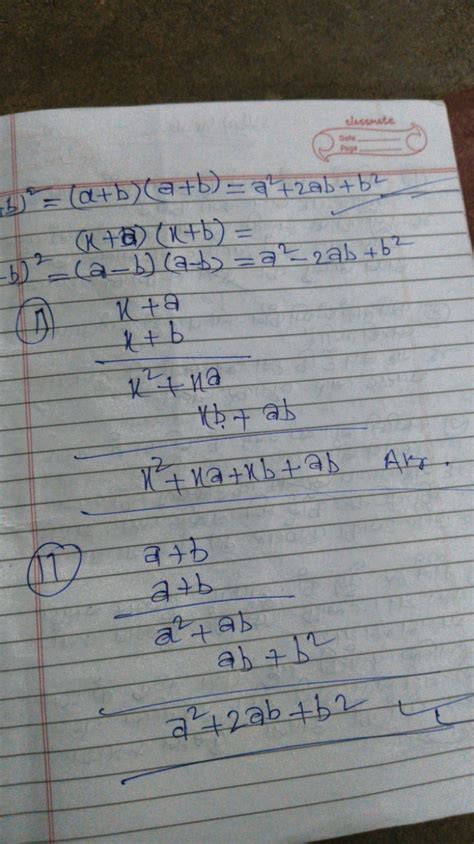 classmate
Date
Page
b)² = (a+b) (a+b) = a²+2ab+b²
(x+a) (x+b) =
-b)² = (a-b) (a-b) = a²-2ab+b²
x+a
x+b
x²+xa
xb+ab
x²+xa+xb+ab
11
a+b
a+b
a²+ab
ab+b²
a²+2ab+b²